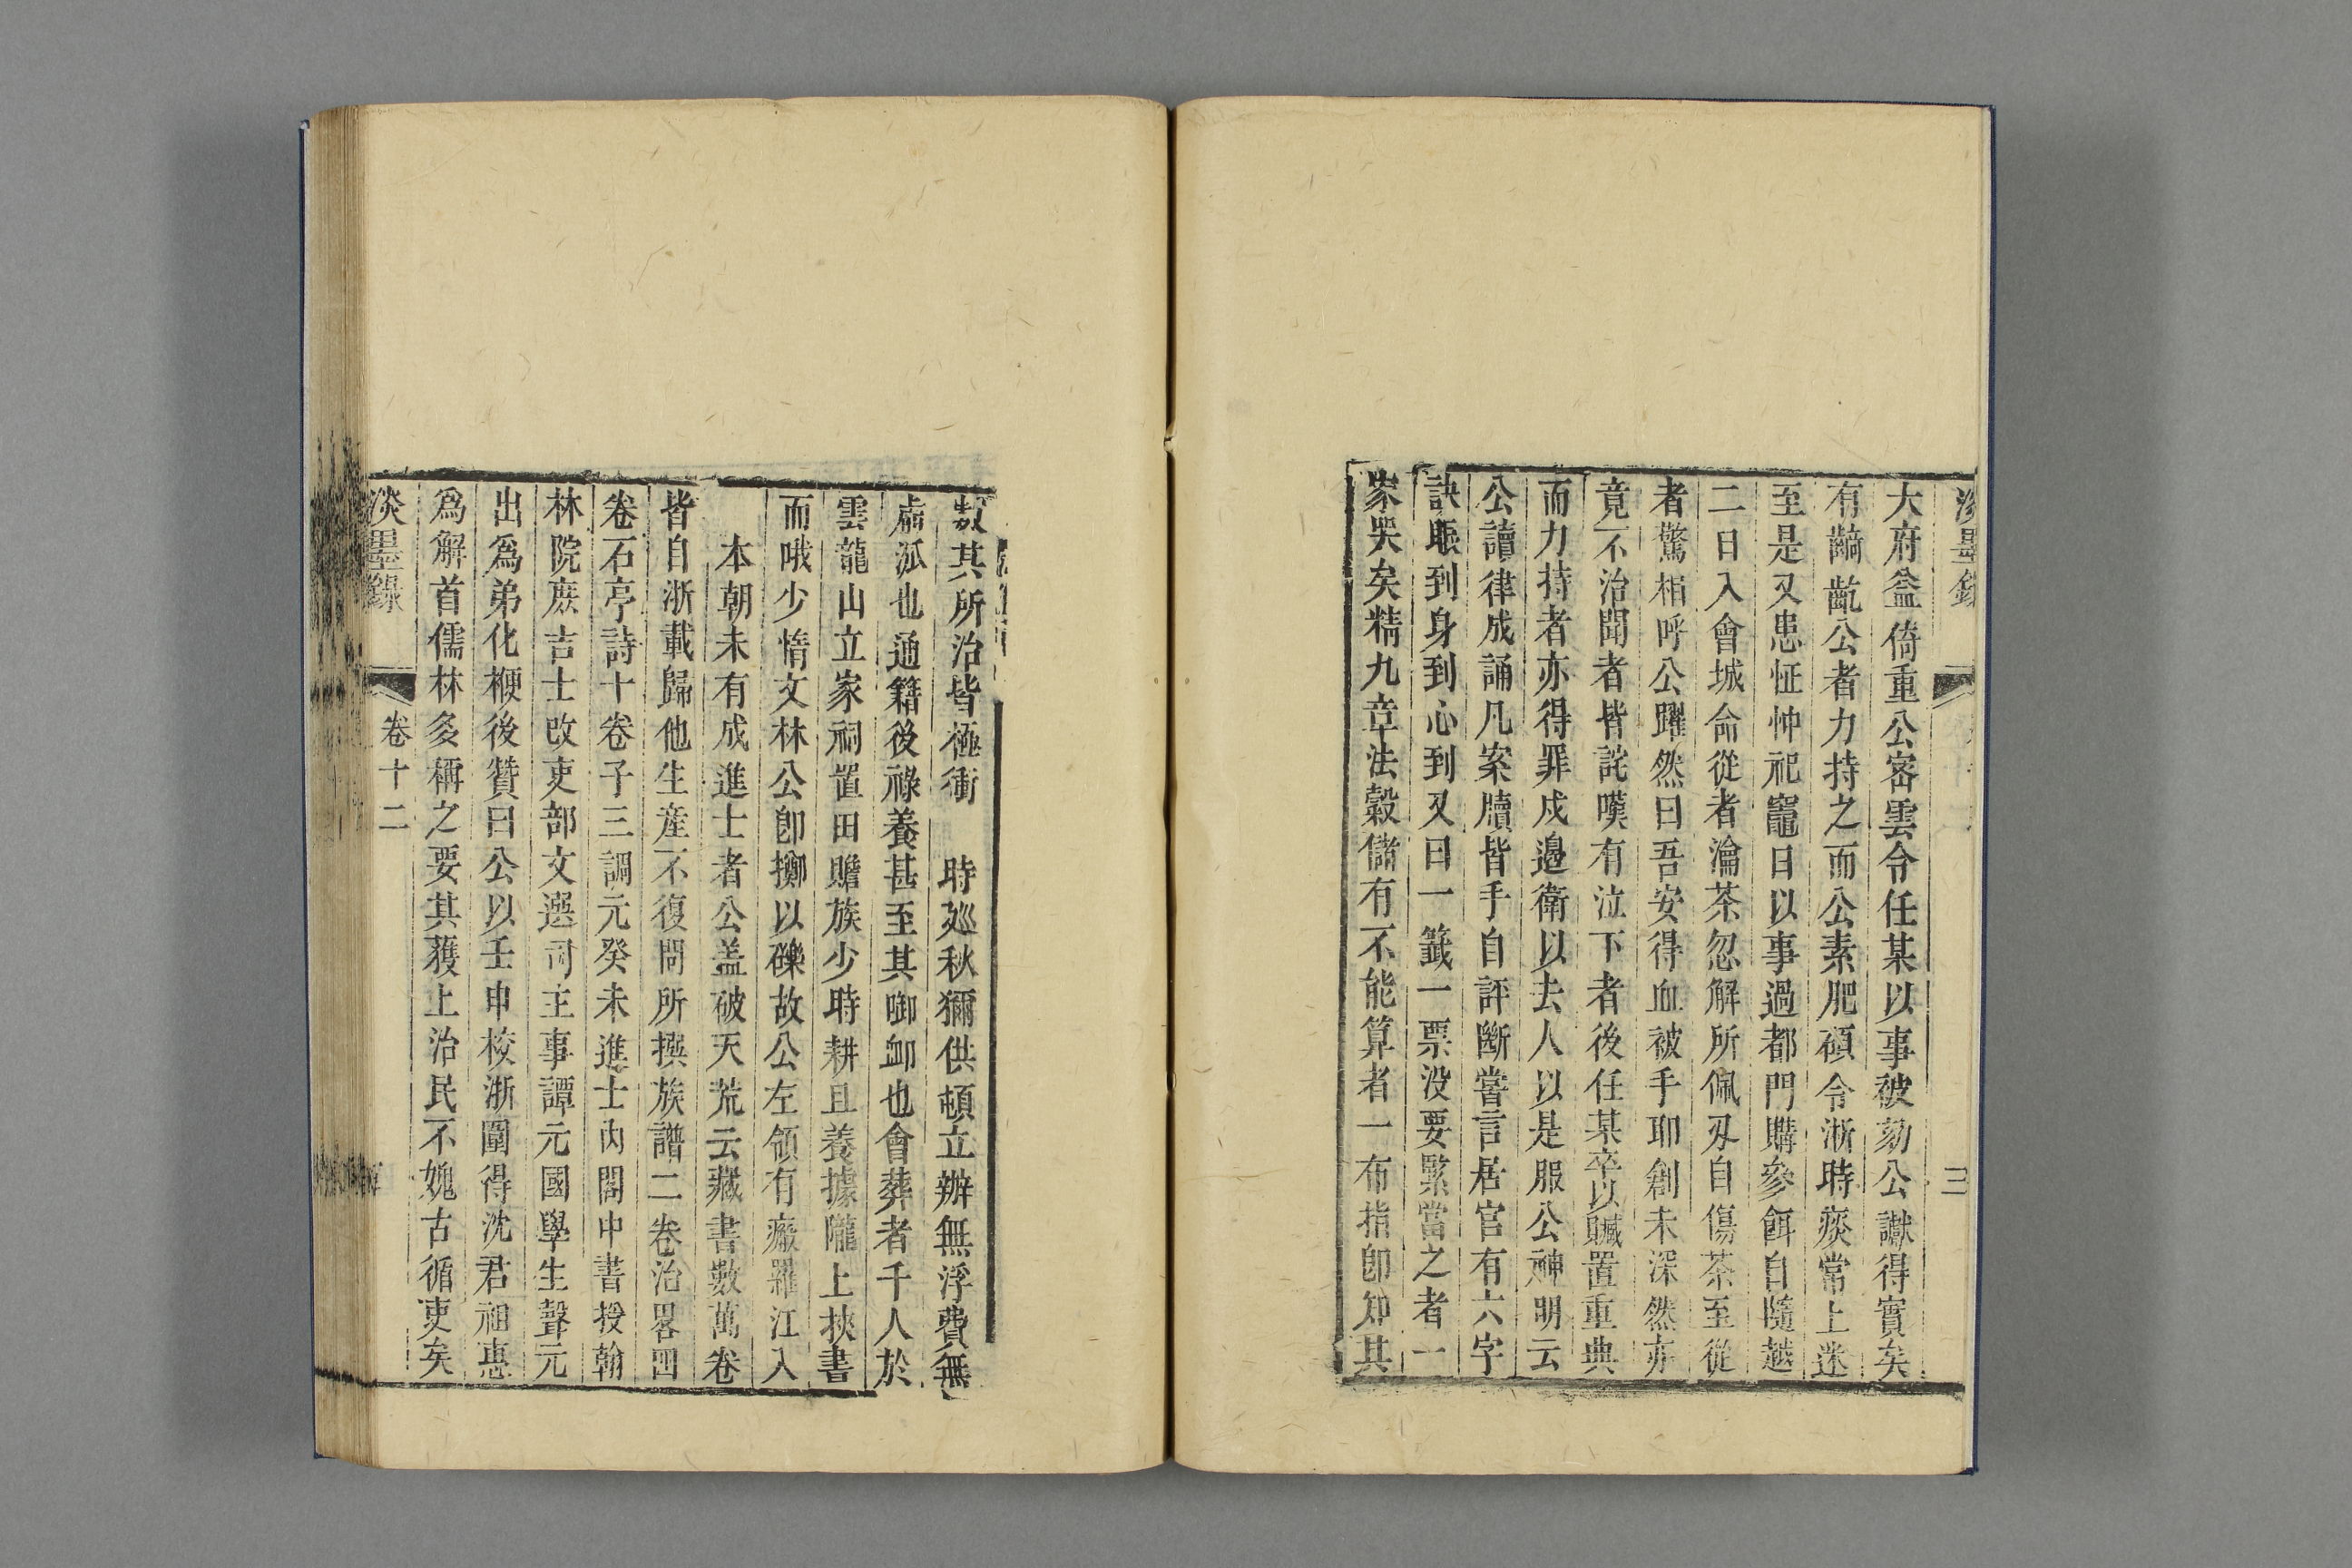 淡墨錄
三
大府益倚重公密雲令任某以事被劾公讞得實矣
有齮齕公者力持之而公素肥碩令浙時痰常上迷
至是又患怔忡祀竈日以事過都門購參餌自隨越
二日入會城命從者瀹茶忽解所佩刄自傷茶至從
者驚相呼公躍然曰吾安得血被手耶創未深然亦
竟不治聞者皆詫嘆有泣下者後任某卒以贓置重典
而力持者亦得罪戍邊衛以去人以是服公神明云
公讀律成誦凡案牘皆手自評斷嘗言居官有六字
訣眼到身到心到又曰一籤一票没要緊當之者一
家哭矣精九章法穀儲有不能算者一布指卽知其
數其所治皆極衝　時廵秋獮供頓立辦無浮費無
虐派也通籍後祿養甚至其啣卹也會葬者千人於
雲龍山立家祠置田贍族少時耕且養據隴上挾書
而哦少惰文林公卽擲以礫故公左領有瘢羅江入
本朝未有成進士者公盖破天荒云藏書數萬卷
皆自浙載歸他生産不復問所撰族譜二卷治畧四
卷石亭詩十卷子三調元癸未進士內閣中書授翰
林院庶吉士改吏部文選司主事譚元國學生聲元
出爲弟化楩後贊曰公以壬申校浙闈得沈君祖惠
爲解首儒林多稱之要其獲上治民不媿古循吏矣
淡墨錄
卷十二